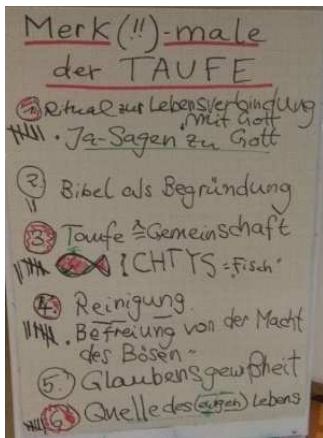 Merk(!!)-male
der TAUFE
1. Ritual zur Lebensverbindung
mit Gott
• Ja-Sagen zu Gott
2. Bibel als Begründung
3. Taufe ≙ Gemeinschaft
ICHTYS = "Fisch"
4. Reinigung
• Befreiung von der Macht
des Bösen
5. Glaubensgewßheit
6. Quelle des (ewigen) Lebens